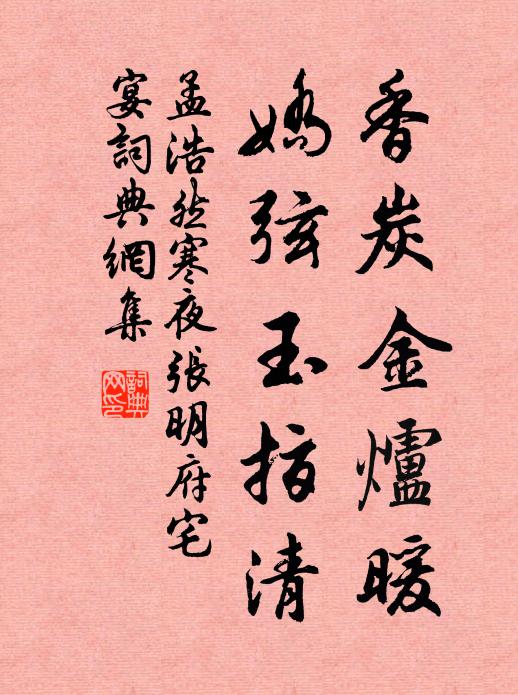 香炭金爐暖
嬌弦玉指清
孟浩然寒夜張明府宅
宴詞典網集
詞典
网印